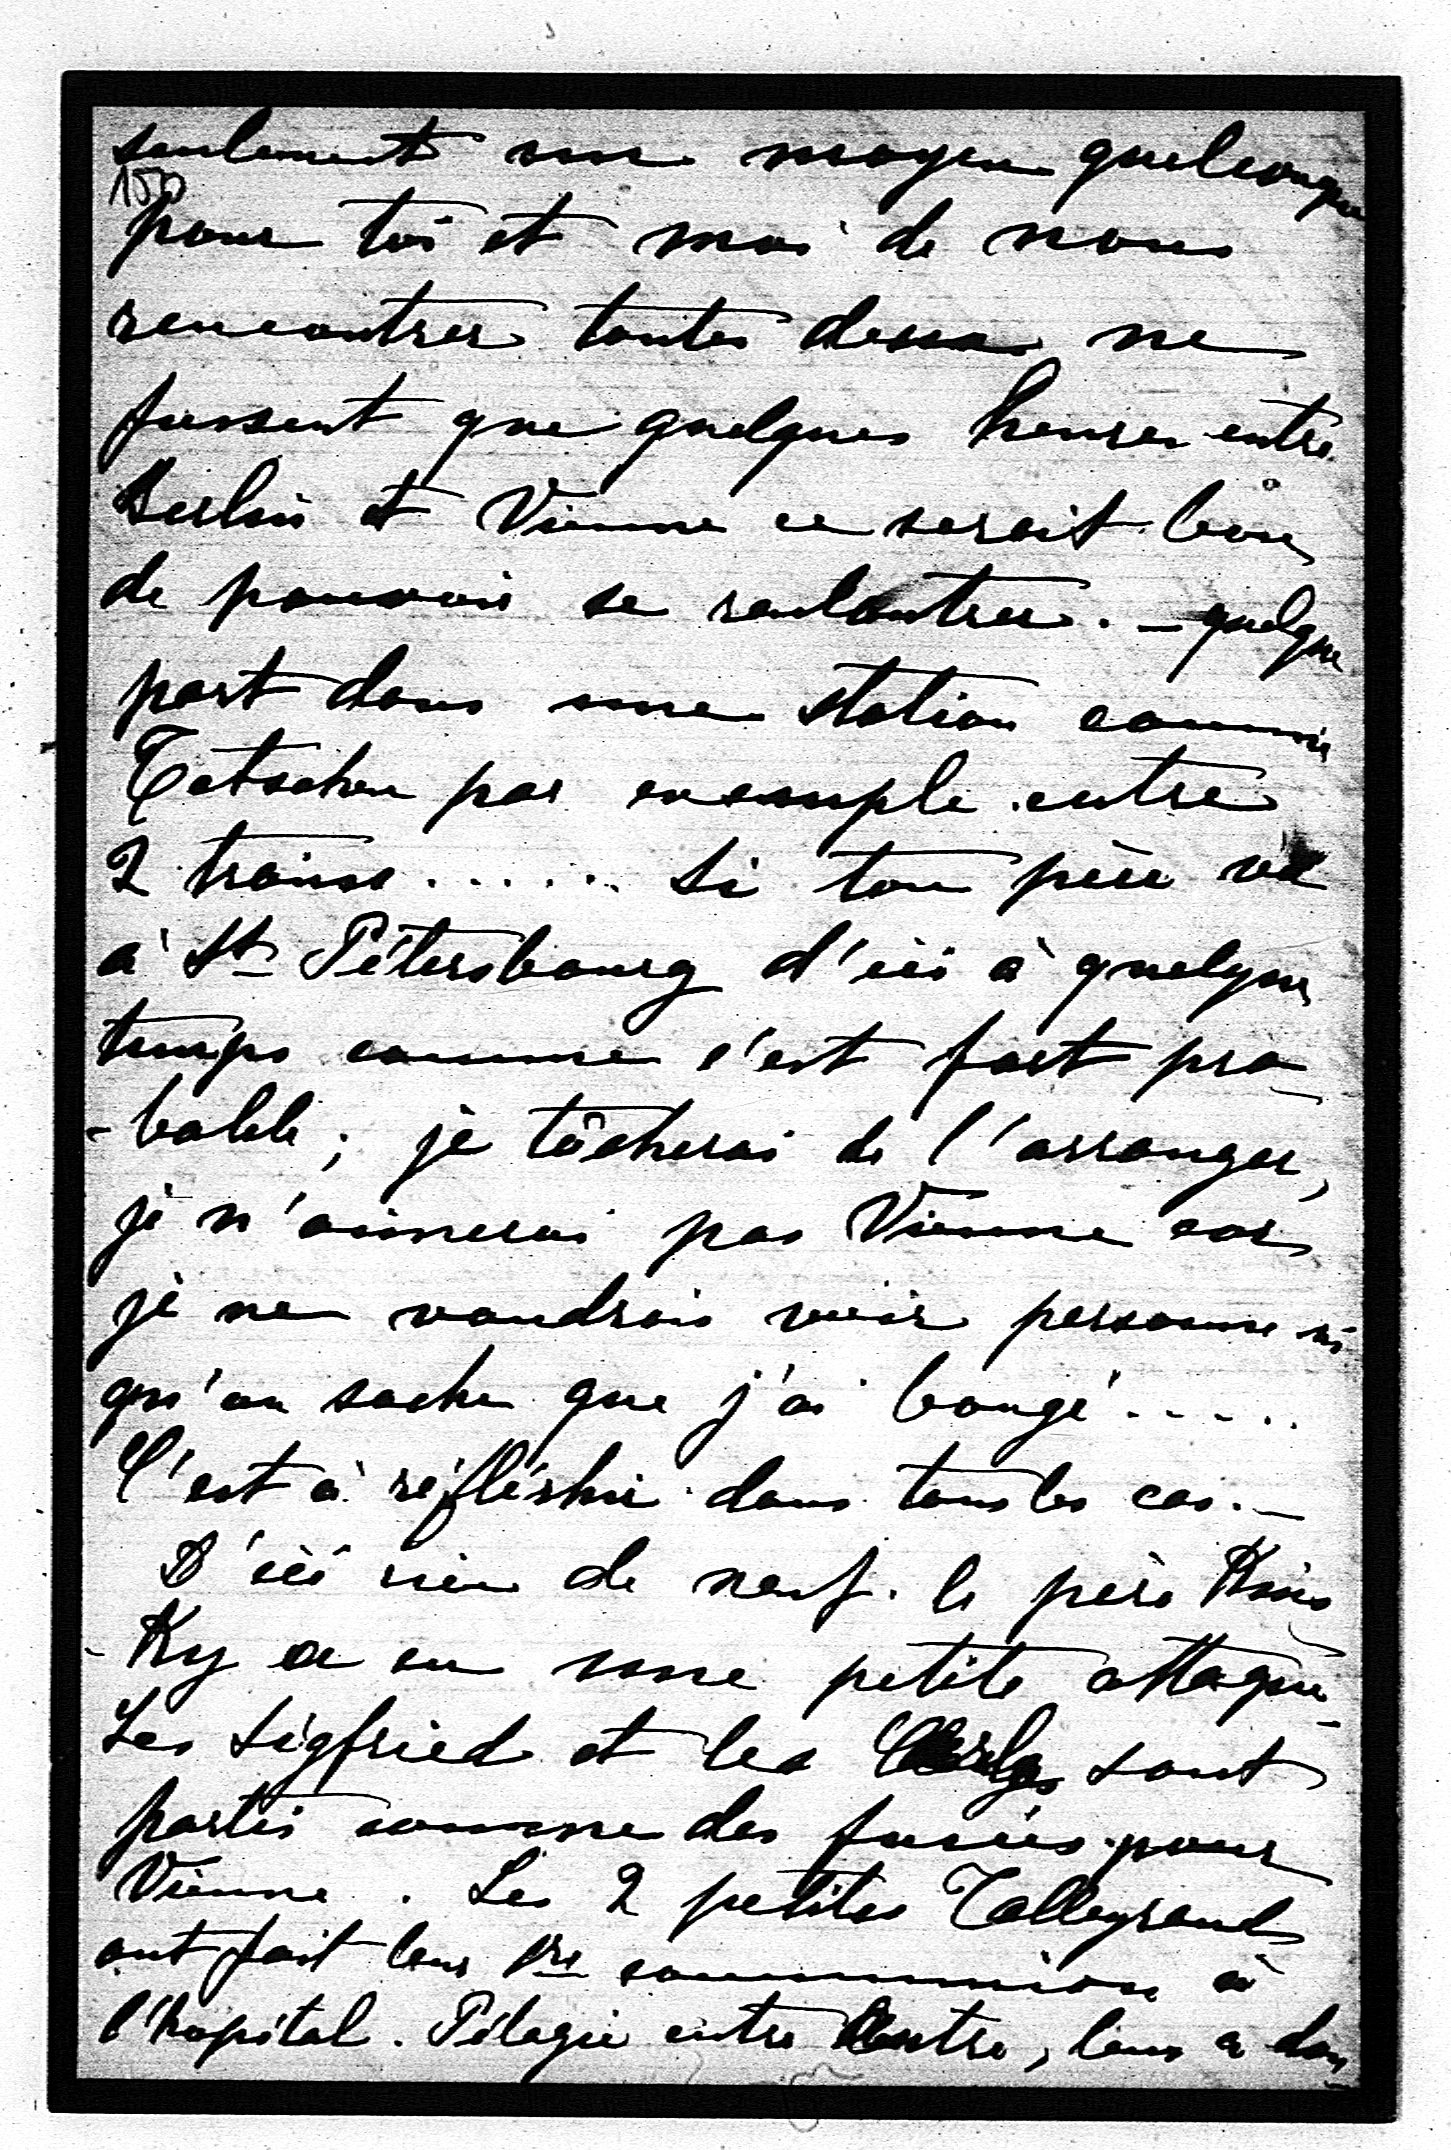 seulement un moyen quelconque
150
pour toi et moi de nous
rencontrer toutes deux ne
fussent que quelques heures entre
Berlin et Vienne ce serait bon
de pouvoir se rencontrer. — quelque
part dans une station comme
Tetschen par exemple entre
2 trains ...... Si ton père va
à St Pétersbourg d'ici à quelque
temps comme c'est fort pro-
-bable ; je tâcherai de l'arranger,
je n'aimerai pas Vienne car
je ne voudrais voir personne ni
qu'on sache que j'ai bougé .....
C'est à réfléchir dans tous les cas. —
D'ici rien de neuf. le père Kins
-Ky a eu une petite attaque
Les Sigfried et les sont
partis comme des furies pour
Vienne. Les 2 petites Talleyrand
ont fait leur 1re communion à
l'hopital. Pélagie entre autre, leur a don-